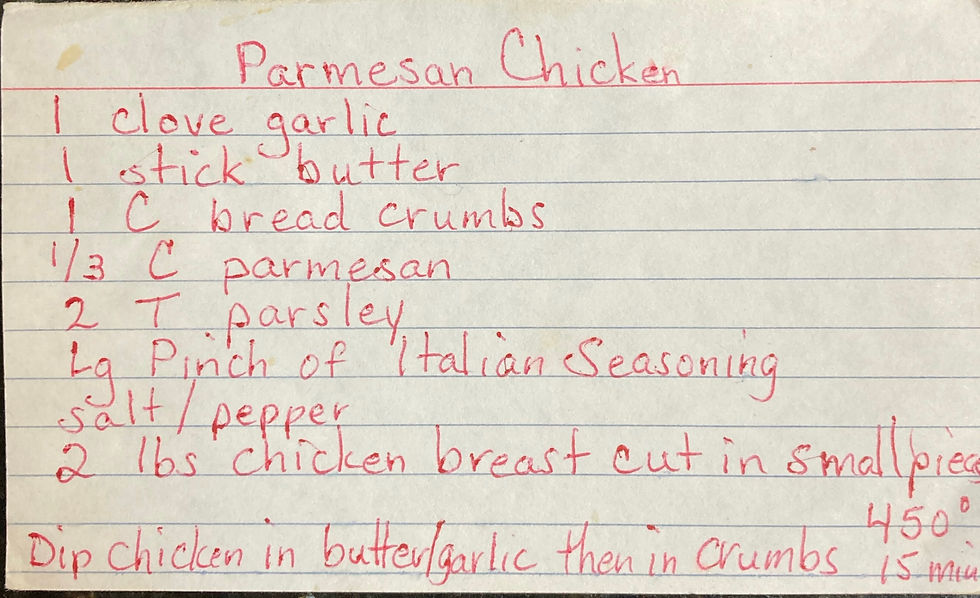 Parmesan Chicken
1 clove garlic
1 stick butter
1 C bread crumbs
1/3 C parmesan
2 T parsley
Lg Pinch of Italian Seasoning
salt/pepper
2 lbs chicken breast cut in small piec
450°
Dip chicken in butter/garlic then in crumbs 15 min